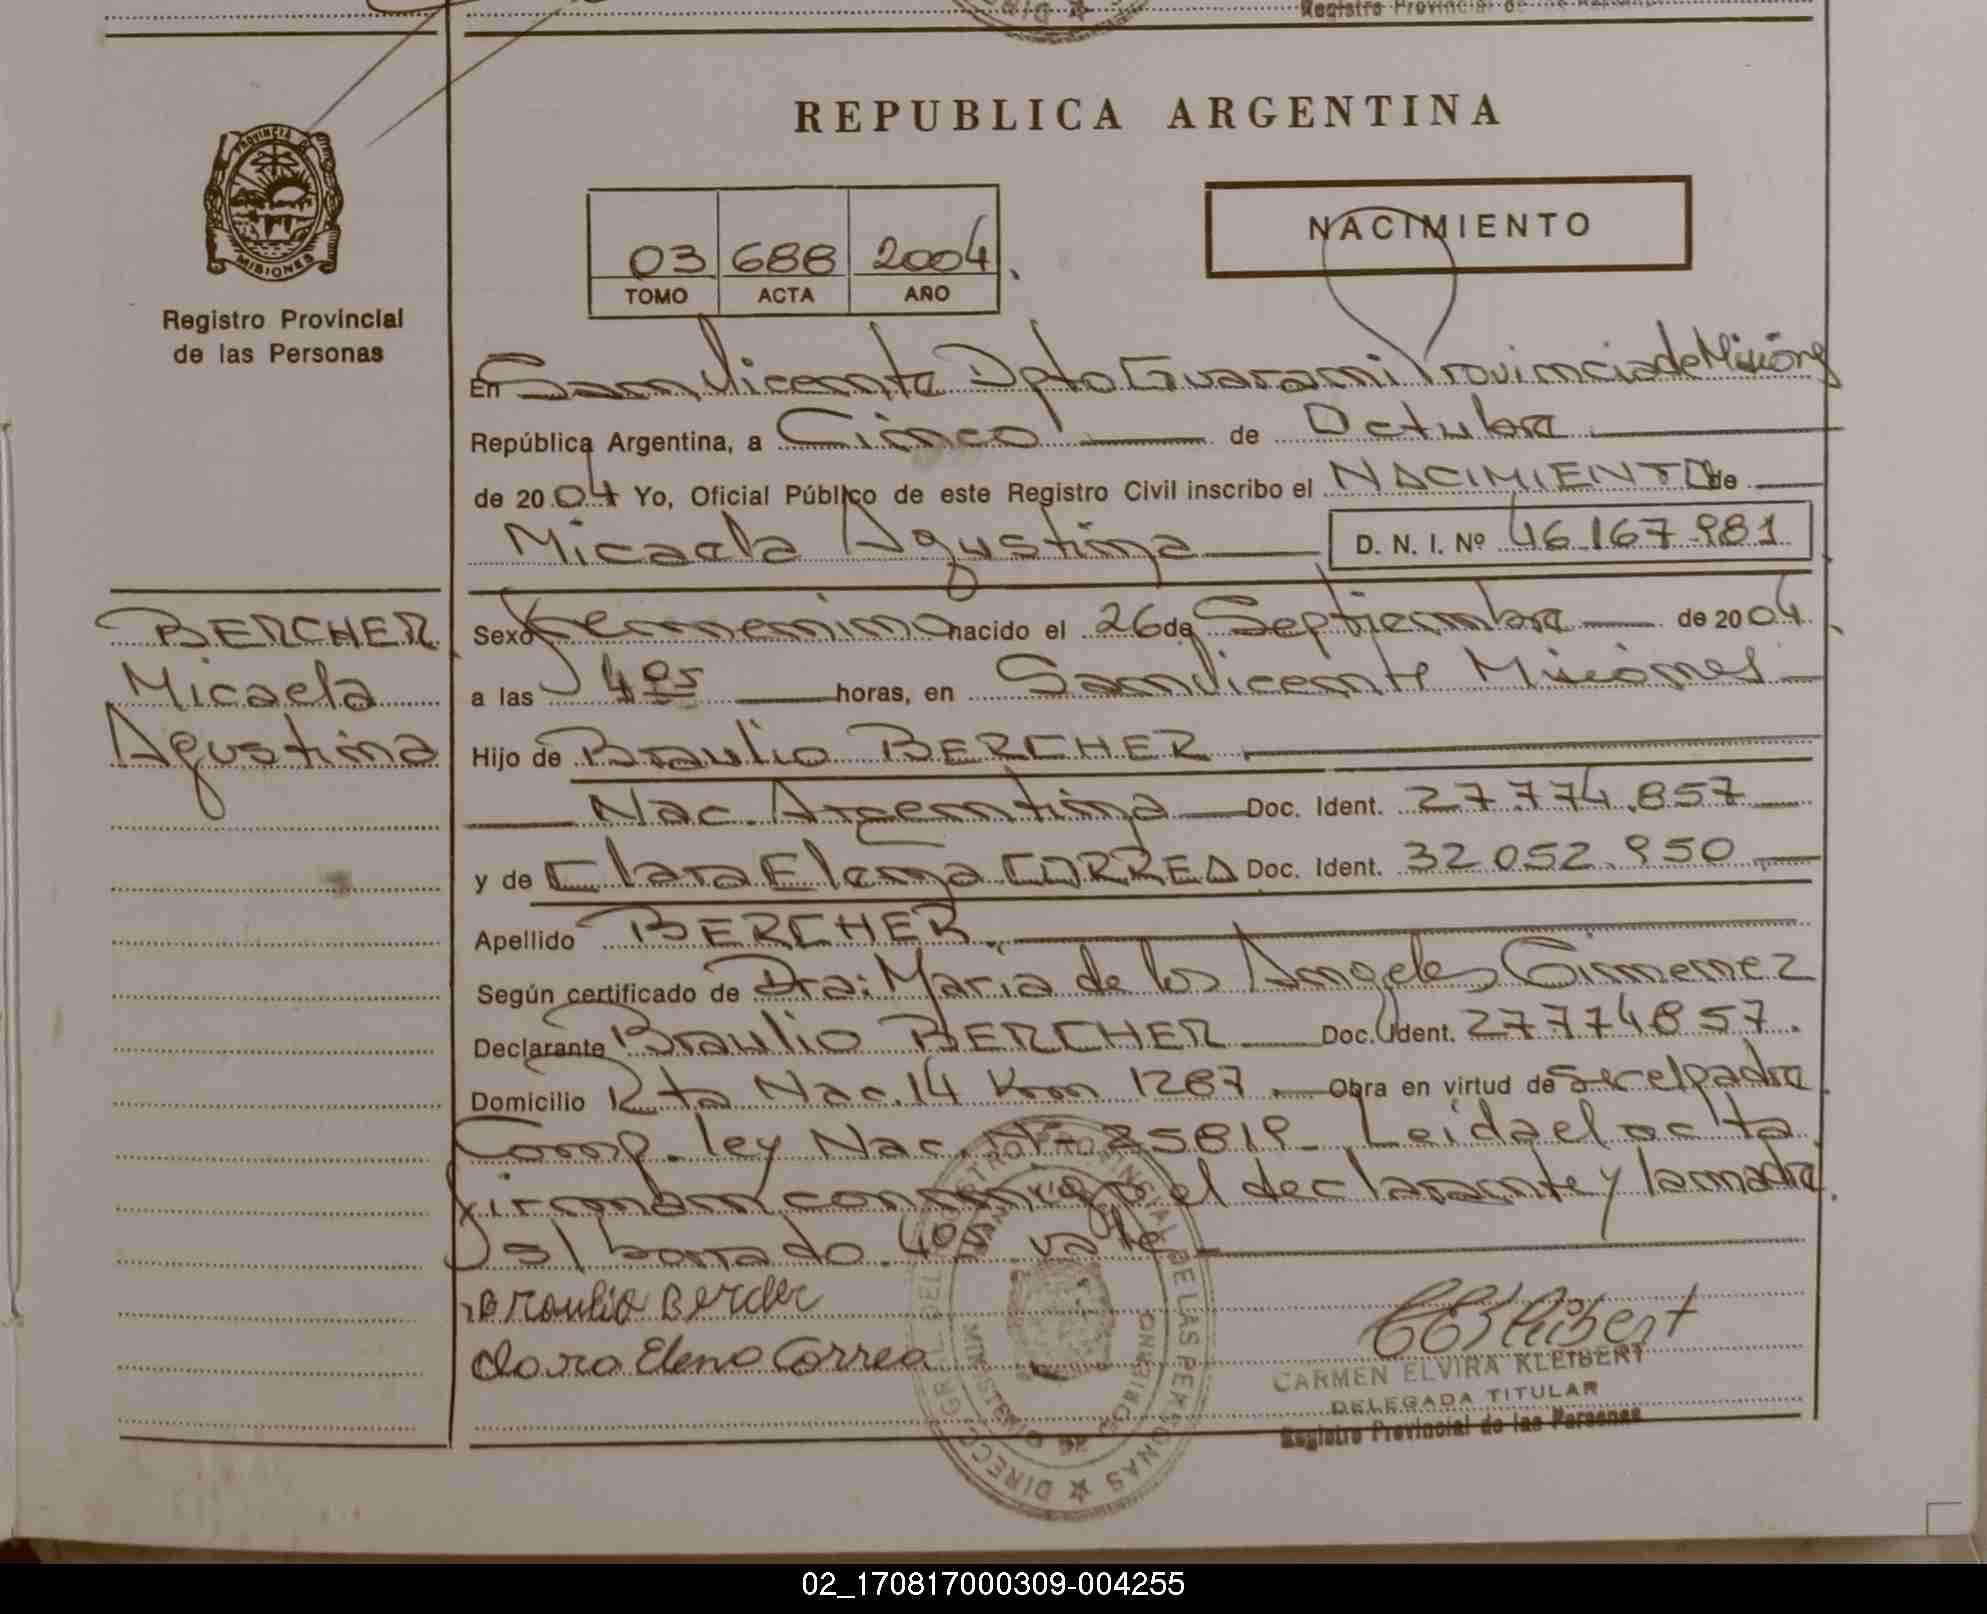 Registro Provincial de
REPUBLICA ARGENTINA
PROVINCIA DE
MISIONES
Registro Provincial
de las Personas
NACIMIENTO
03 688 2004
TOMO ACTA AÑO
En San Vicente Dpto Guarani Provincia de Misiones
República Argentina, a Cinco de Octubre
de 2004 Yo, Oficial Público de este Registro Civil inscribo el NACIMIENTO de
Micaela Agustina D. N. I. Nº 46.167.981
BERCHER
Micaela
Agustina
Sexo Femenino nacido el 26 de Septiembre de 2004
a las 4 05 horas, en San Vicente Misiones
Hijo de Braulio BERCHER
Nac. Argentina Doc. Ident. 27.774.857
y de Clara Elena CORREA Doc. Ident. 32.052.950
Apellido BERCHER.
Según certificado de Dra: Maria de los Angeles Gimenez
Declarante Braulio BERCHER Doc. Ident. 27774857.
Domicilio Rta Nac. 14 Km 1287. Obra en virtud de Ser el padre
Comp. ley Nac. Nº 25819_ Leida el acta
firman conmigo el declarante y la madre.
s/ borrado. 405 vale
Braulio Bercher
Clara Elena Correa
CARMEN ELVIRA KLEIBERT
DELEGADA TITULAR
Registro Provincial de las Personas
02_170817000309-004255